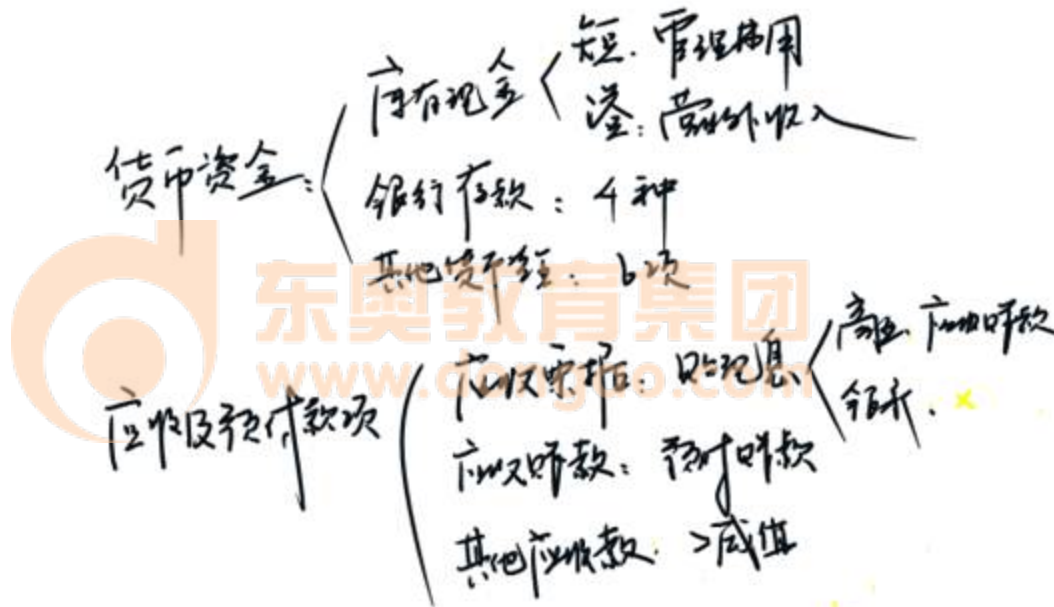 货币资金:
库存现金
短. 管理费用
溢: 营业外收入
银行存款: 4种
其他货币资金: 6项
东奥教育集团
www.dongao.com
应收及预付款项
应收票据: 贴现息
商承 应收账款
银承.
应收账款: 预付账款
其他应收款. >减值